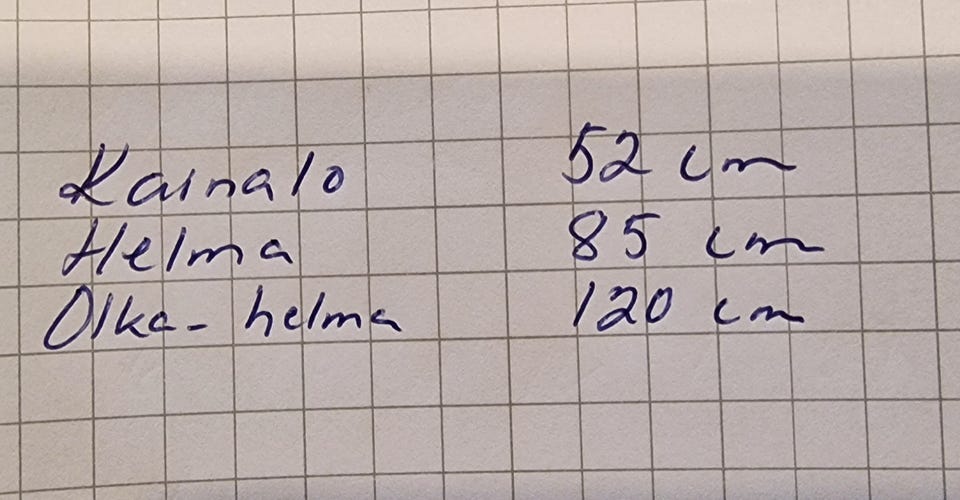 Kainalo 52 cm
Helma 85 cm
Olka-helma 120 cm